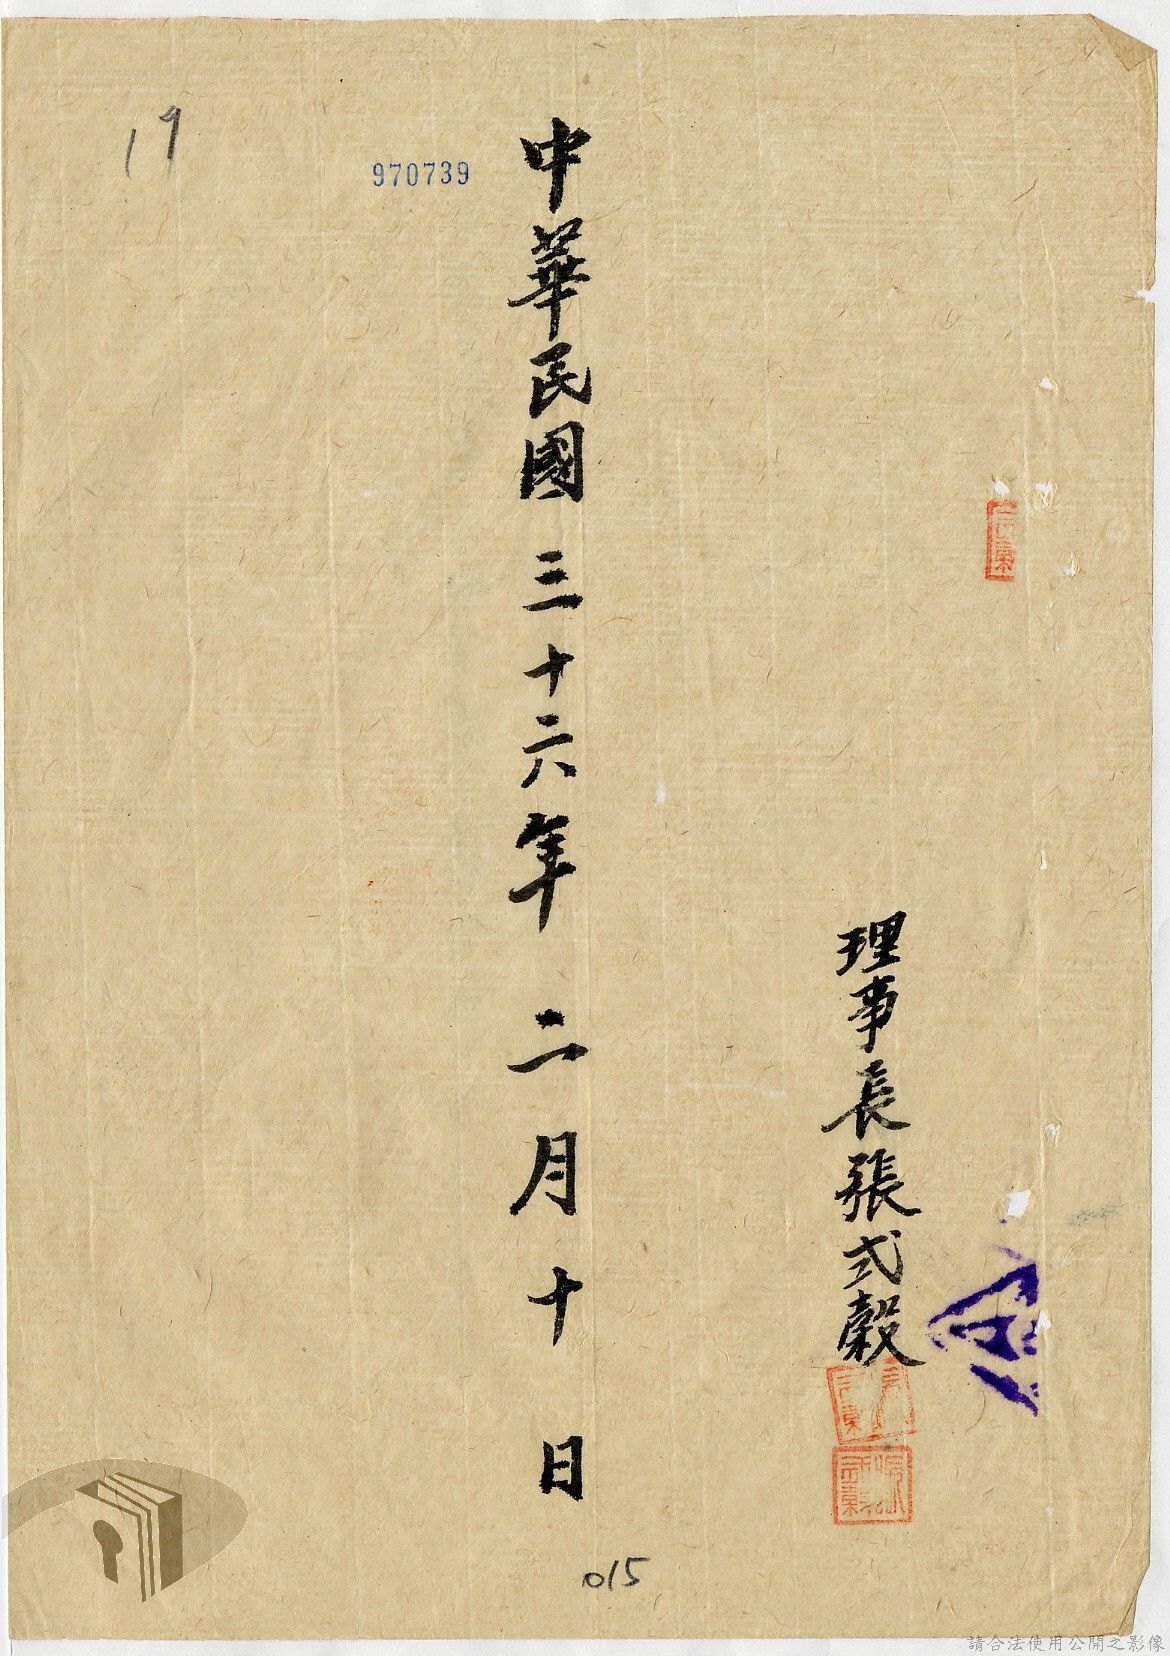 理事長張式穀
中華民國三十六年二月十日
970739
19
015
請合法使用公開之影像